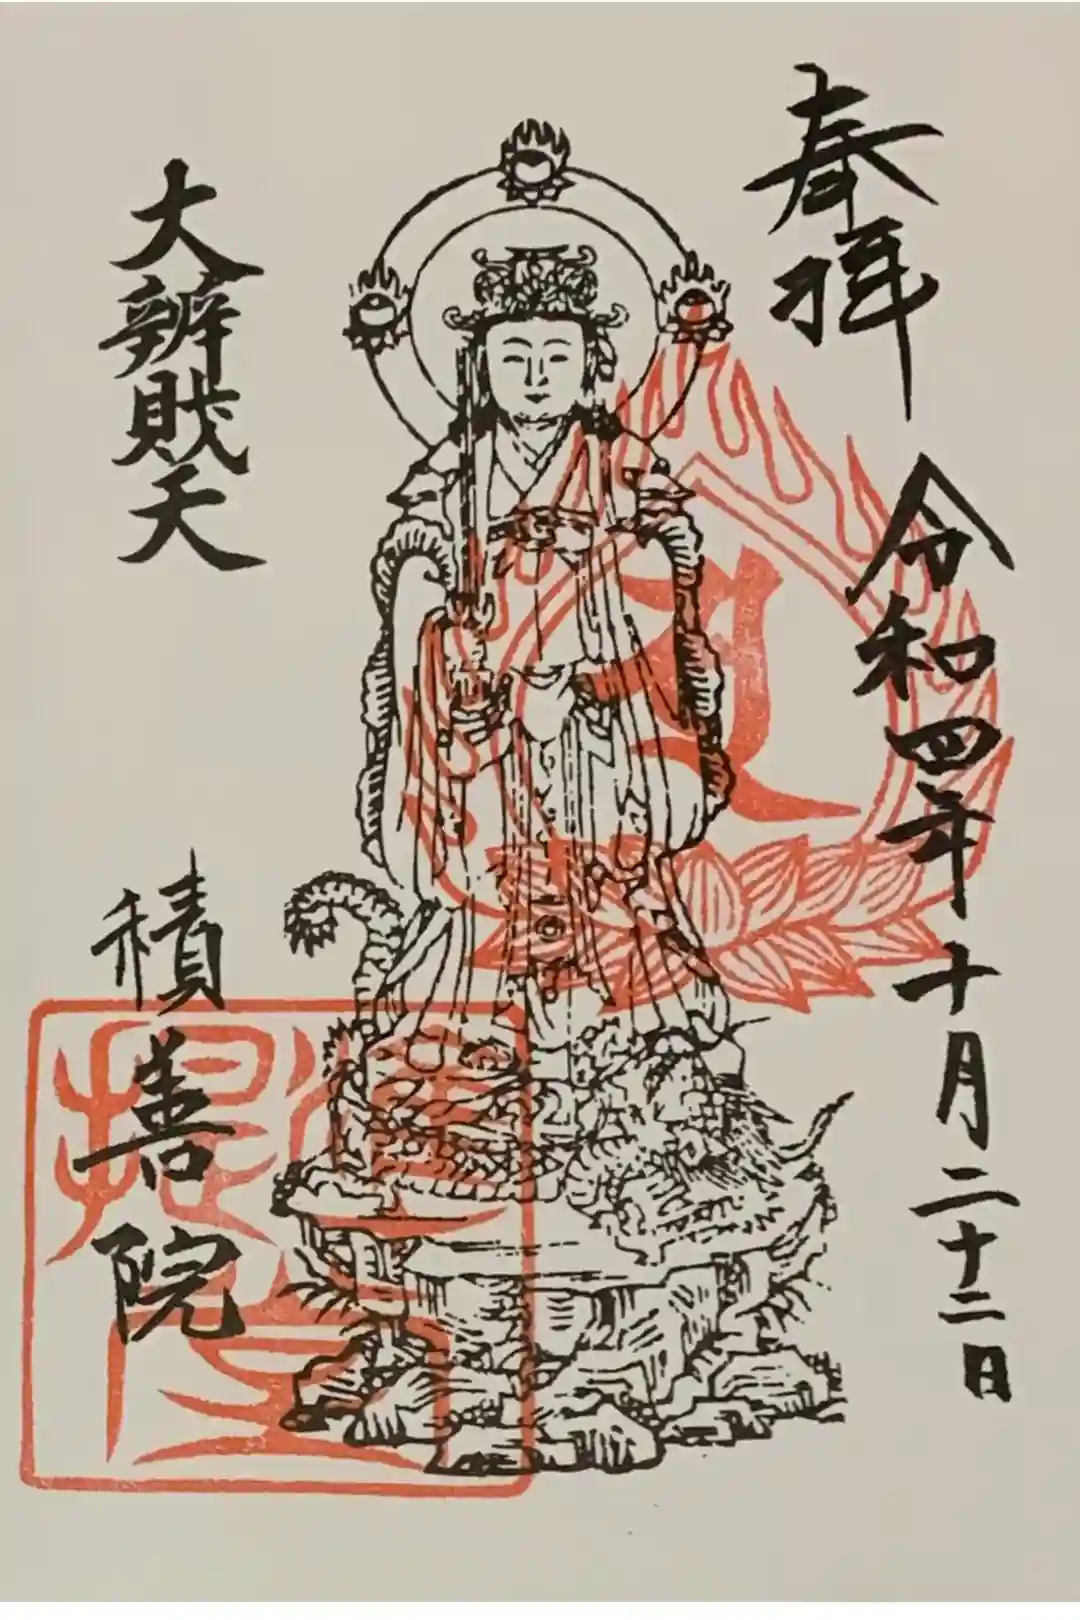 奉拝
令和四年十月二十二日
大辨財天
積善院